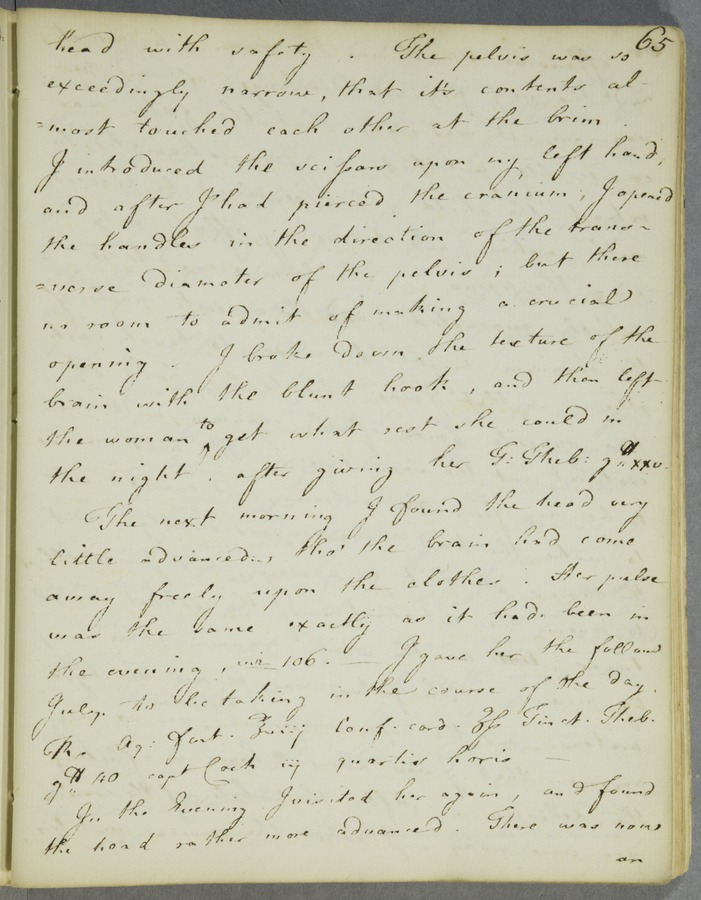 65
head with safety . The pelvis was so
exceedingly narrow, that it's contents al
=most touched each other at the brim .
I introduced the scissars upon my left hand,
and after I had pierced the cranium, I opened
the handles in the direction of the trans-
=verse diameter of the pelvis ; but there
no room to admit of making a crucial
opening . I broke down the texture of the
brain with the blunt hook , and then left
the woman to get what rest she could in
the night , after giving her G: Theb: gtt xxv.
The next morning I found the head very
little advanced, tho' the brain had come
away freely upon the clothes . Her pulse
was the same exactly as it had been in
the evening , viz 106. — I gave her the follow
July. to be taking in the course of the day.
Rx Aq: font. conf. card. Tinct. Theb.
gtt 40 capt Coch iij quartis horis —
In the Evening I visited her again , and found
the head rather more advanced . There was now
an